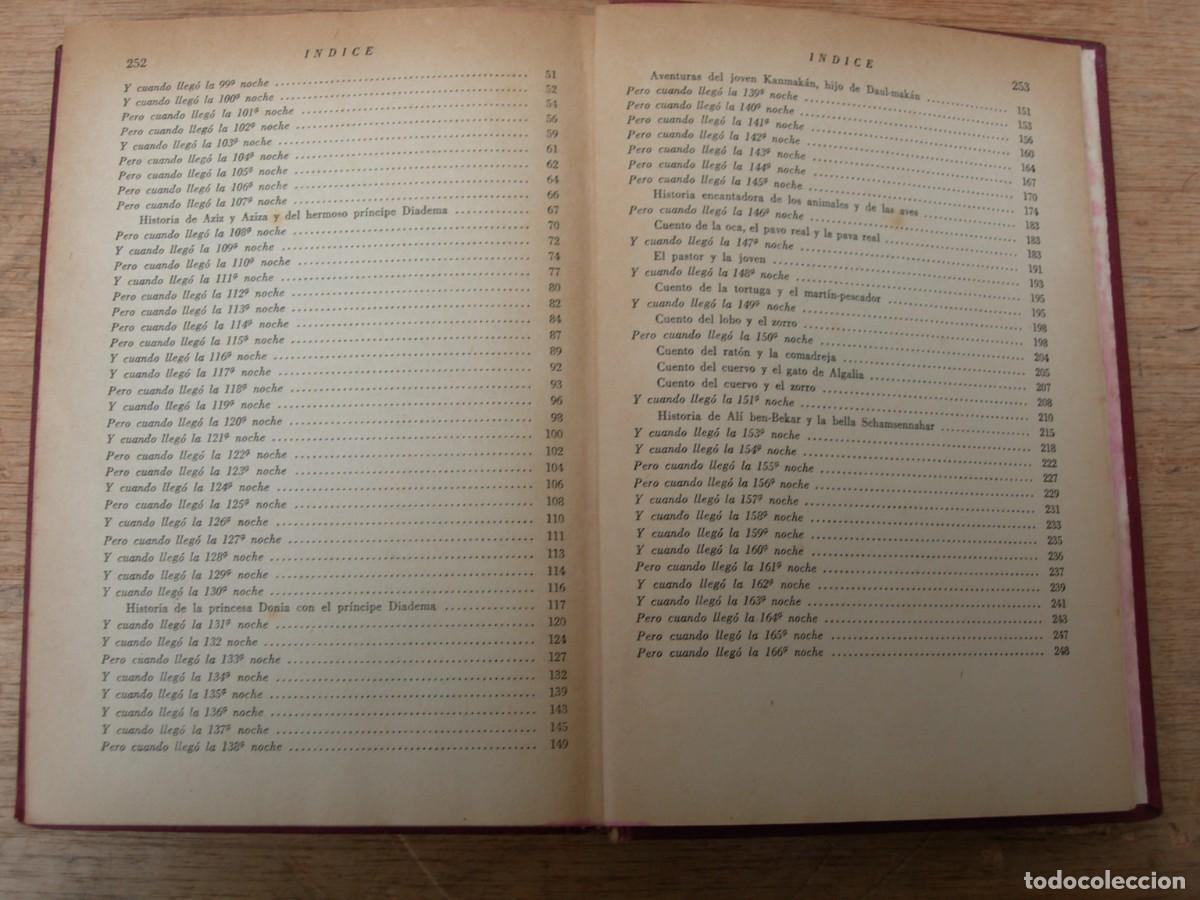 252
INDICE
Y cuando llegó la 99ª noche 51
Y cuando llegó la 100ª noche 52
Pero cuando llegó la 101ª noche 54
Pero cuando llegó la 102ª noche 56
Y cuando llegó la 103ª noche 59
Pero cuando llegó la 104ª noche 61
Pero cuando llegó la 105ª noche 62
Pero cuando llegó la 106ª noche 64
Pero cuando llegó la 107ª noche 66
Historia de Aziz y Aziza y del hermoso príncipe Diadema 67
Pero cuando llegó la 108ª noche 70
Y cuando llegó la 109ª noche 72
Pero cuando llegó la 110ª noche 74
Y cuando llegó la 111ª noche 77
Pero cuando llegó la 112ª noche 80
Pero cuando llegó la 113ª noche 82
Pero cuando llegó la 114ª noche 84
Pero cuando llegó la 115ª noche 87
Y cuando llegó la 116ª noche 89
Y cuando llegó la 117ª noche 92
Pero cuando llegó la 118ª noche 93
Y cuando llegó la 119ª noche 96
Pero cuando llegó la 120ª noche 98
Y cuando llegó la 121ª noche 100
Pero cuando llegó la 122ª noche 102
Pero cuando llegó la 123ª noche 104
Y cuando llegó la 124ª noche 106
Pero cuando llegó la 125ª noche 108
Y cuando llegó la 126ª noche 110
Pero cuando llegó la 127ª noche 111
Y cuando llegó la 128ª noche 113
Y cuando llegó la 129ª noche 114
Y cuando llegó la 130ª noche 116
Historia de la princesa Donia con el príncipe Diadema 117
Y cuando llegó la 131ª noche 120
Y cuando llegó la 132 noche 124
Pero cuando llegó la 133ª noche 127
Y cuando llegó la 134ª noche 132
Y cuando llegó la 135ª noche 139
Y cuando llegó la 136ª noche 143
Y cuando llegó la 137ª noche 145
Pero cuando llegó la 138ª noche 149
INDICE
253
Aventuras del joven Kanmakán, hijo de Daul-makán 151
Pero cuando llegó la 139ª noche 153
Pero cuando llegó la 140ª noche 156
Pero cuando llegó la 141ª noche 160
Pero cuando llegó la 142ª noche 164
Pero cuando llegó la 143ª noche 167
Pero cuando llegó la 144ª noche 170
Pero cuando llegó la 145ª noche 174
Historia encantadora de los animales y de las aves 183
Pero cuando llegó la 146ª noche 183
Cuento de la oca, el pavo real y la pava real 183
Y cuando llegó la 147ª noche 191
El pastor y la joven 193
Y cuando llegó la 148ª noche 195
Cuento de la tortuga y el martín-pescador 195
Y cuando llegó la 149ª noche 198
Cuento del lobo y el zorro 198
Pero cuando llegó la 150ª noche 204
Cuento del ratón y la comadreja 205
Cuento del cuervo y el gato de Algalia 207
Cuento del cuervo y el zorro 208
Y cuando llegó la 151ª noche 210
Historia de Alí ben-Bekar y la bella Schamsennahar 215
Y cuando llegó la 153ª noche 218
Y cuando llegó la 154ª noche 222
Pero cuando llegó la 155ª noche 227
Pero cuando llegó la 156ª noche 229
Y cuando llegó la 157ª noche 231
Y cuando llegó la 158ª noche 233
Y cuando llegó la 159ª noche 235
Y cuando llegó la 160ª noche 236
Pero cuando llegó la 161ª noche 237
Y cuando llegó la 162ª noche 239
Y cuando llegó la 163ª noche 241
Pero cuando llegó la 164ª noche 243
Pero cuando llegó la 165ª noche 247
Pero cuando llegó la 166ª noche 248
todocoleccion